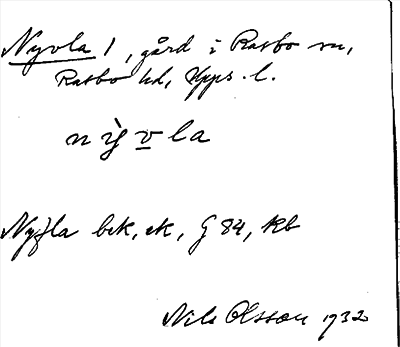 Nyvla 1, gård i Rasbo sn,
Rasbo hd, Upps. l.
nỳ̖v̲la
Nyfla bek, ek, G 84, kb
Nils Olsson 1932